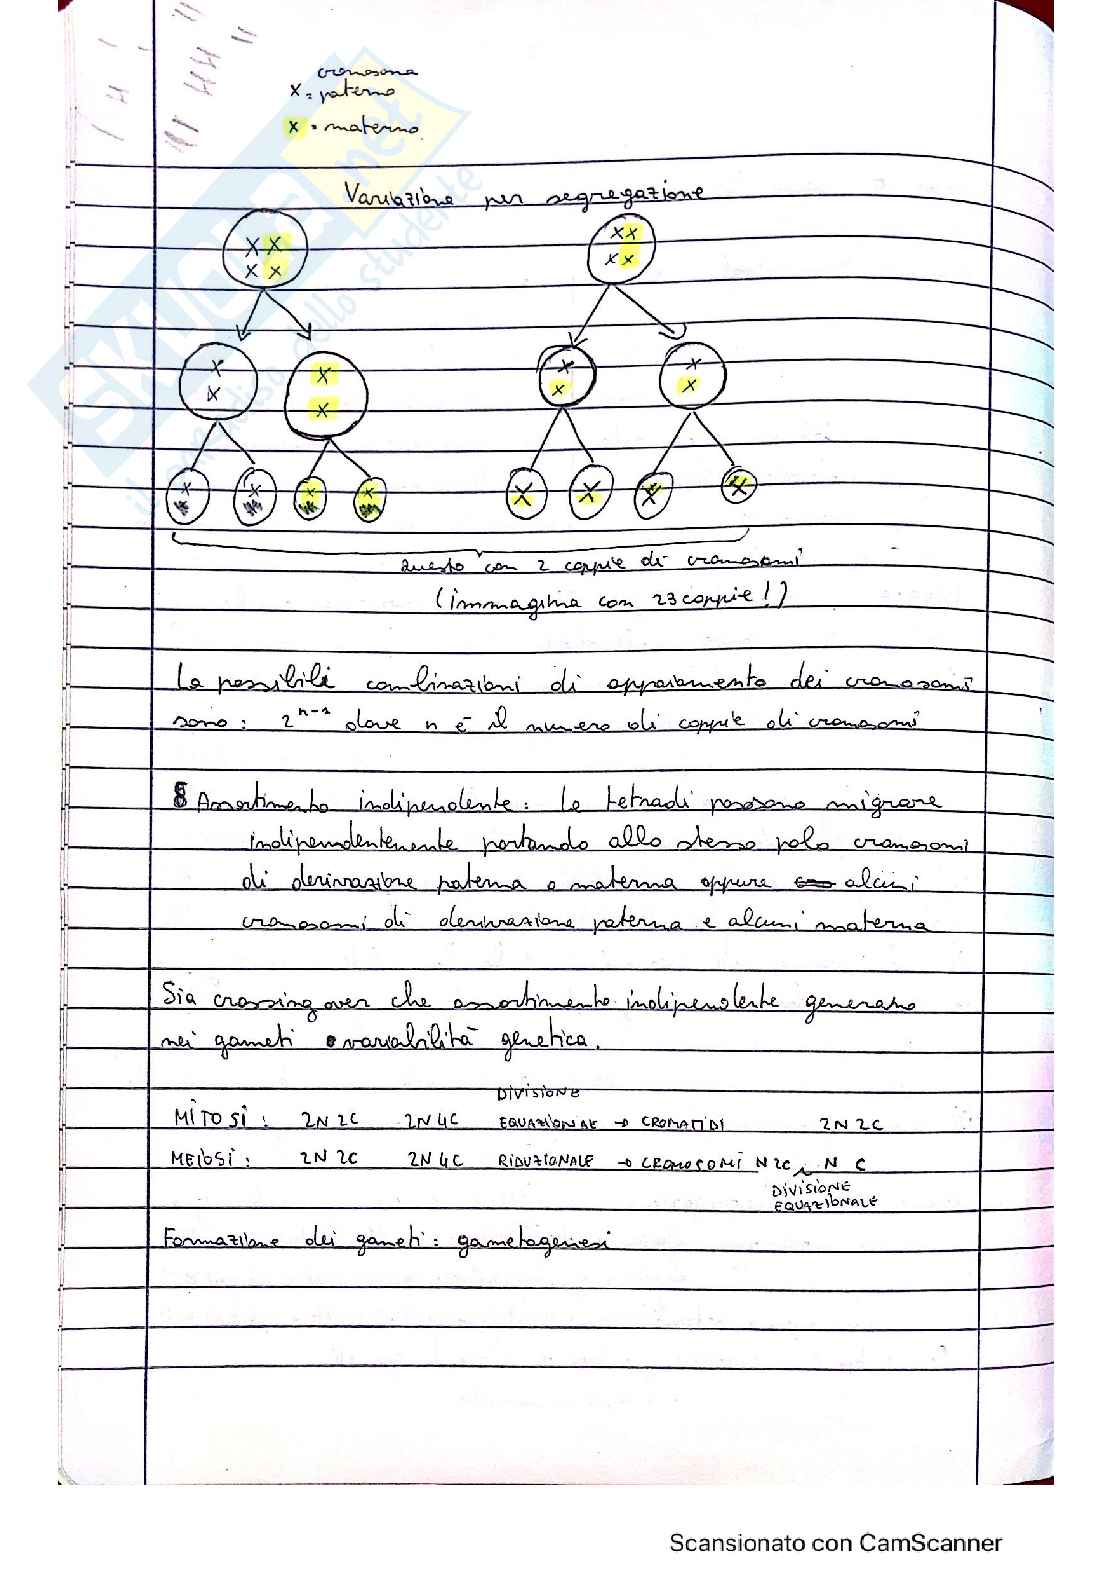 cromosoma
x = paterno
x = materno
Variazione per segregazione
questo con 2 coppie di cromosomi
(immagina con 23 coppie!)
Le possibili combinazioni di appaiamento dei cromosomi
sono: 2ⁿ⁻¹ dove n è il numero di coppie di cromosomi
Assortimento indipendente: le tetradi possono migrare
indipendentemente portando allo stesso polo cromosomi
di derivazione paterna o materna oppure alcuni
cromosomi di derivazione paterna e alcuni materna
Sia crossing over che assortimento indipendente generano
nei gameti variabilità genetica.
DIVISIONE
MITOSI: 2N 2C 2N 4C EQUAZIONALE → CROMATIDI 2N 2C
MEIOSI: 2N 2C 2N 4C RIDUZIONALE → CROMOSOMI N 2C N C
DIVISIONE
EQUAZIONALE
Formazione dei gameti: gametogenesi
SKUOLA.net
il paradiso dello studente
Scansionato con CamScanner